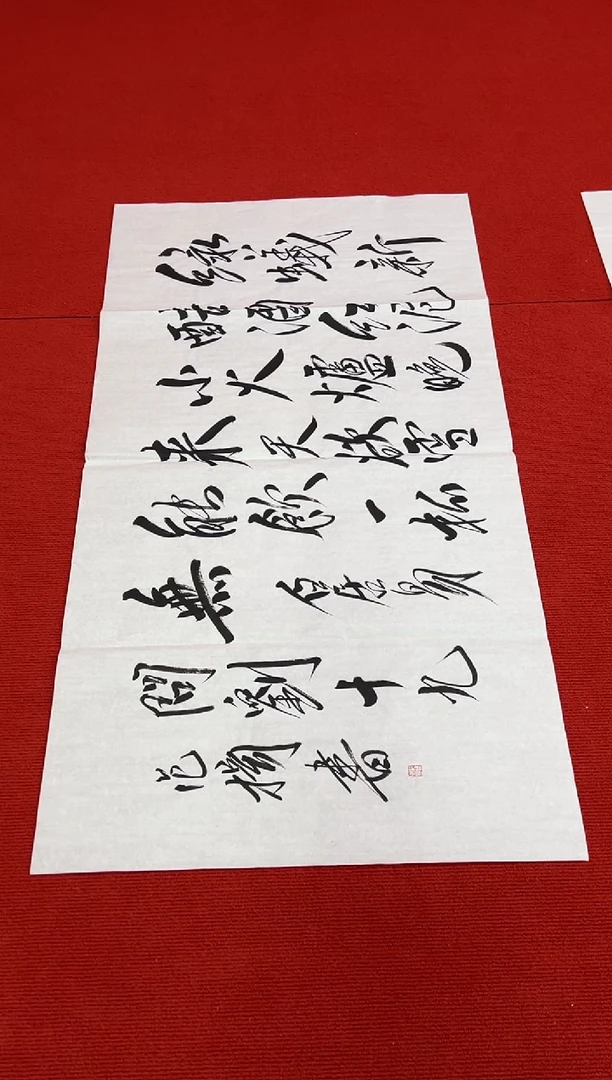 绿蟻新
醅酒红泥
小火爐晚
来天欲雪
能飲一杯
無 白居易
問劉十九
范 書